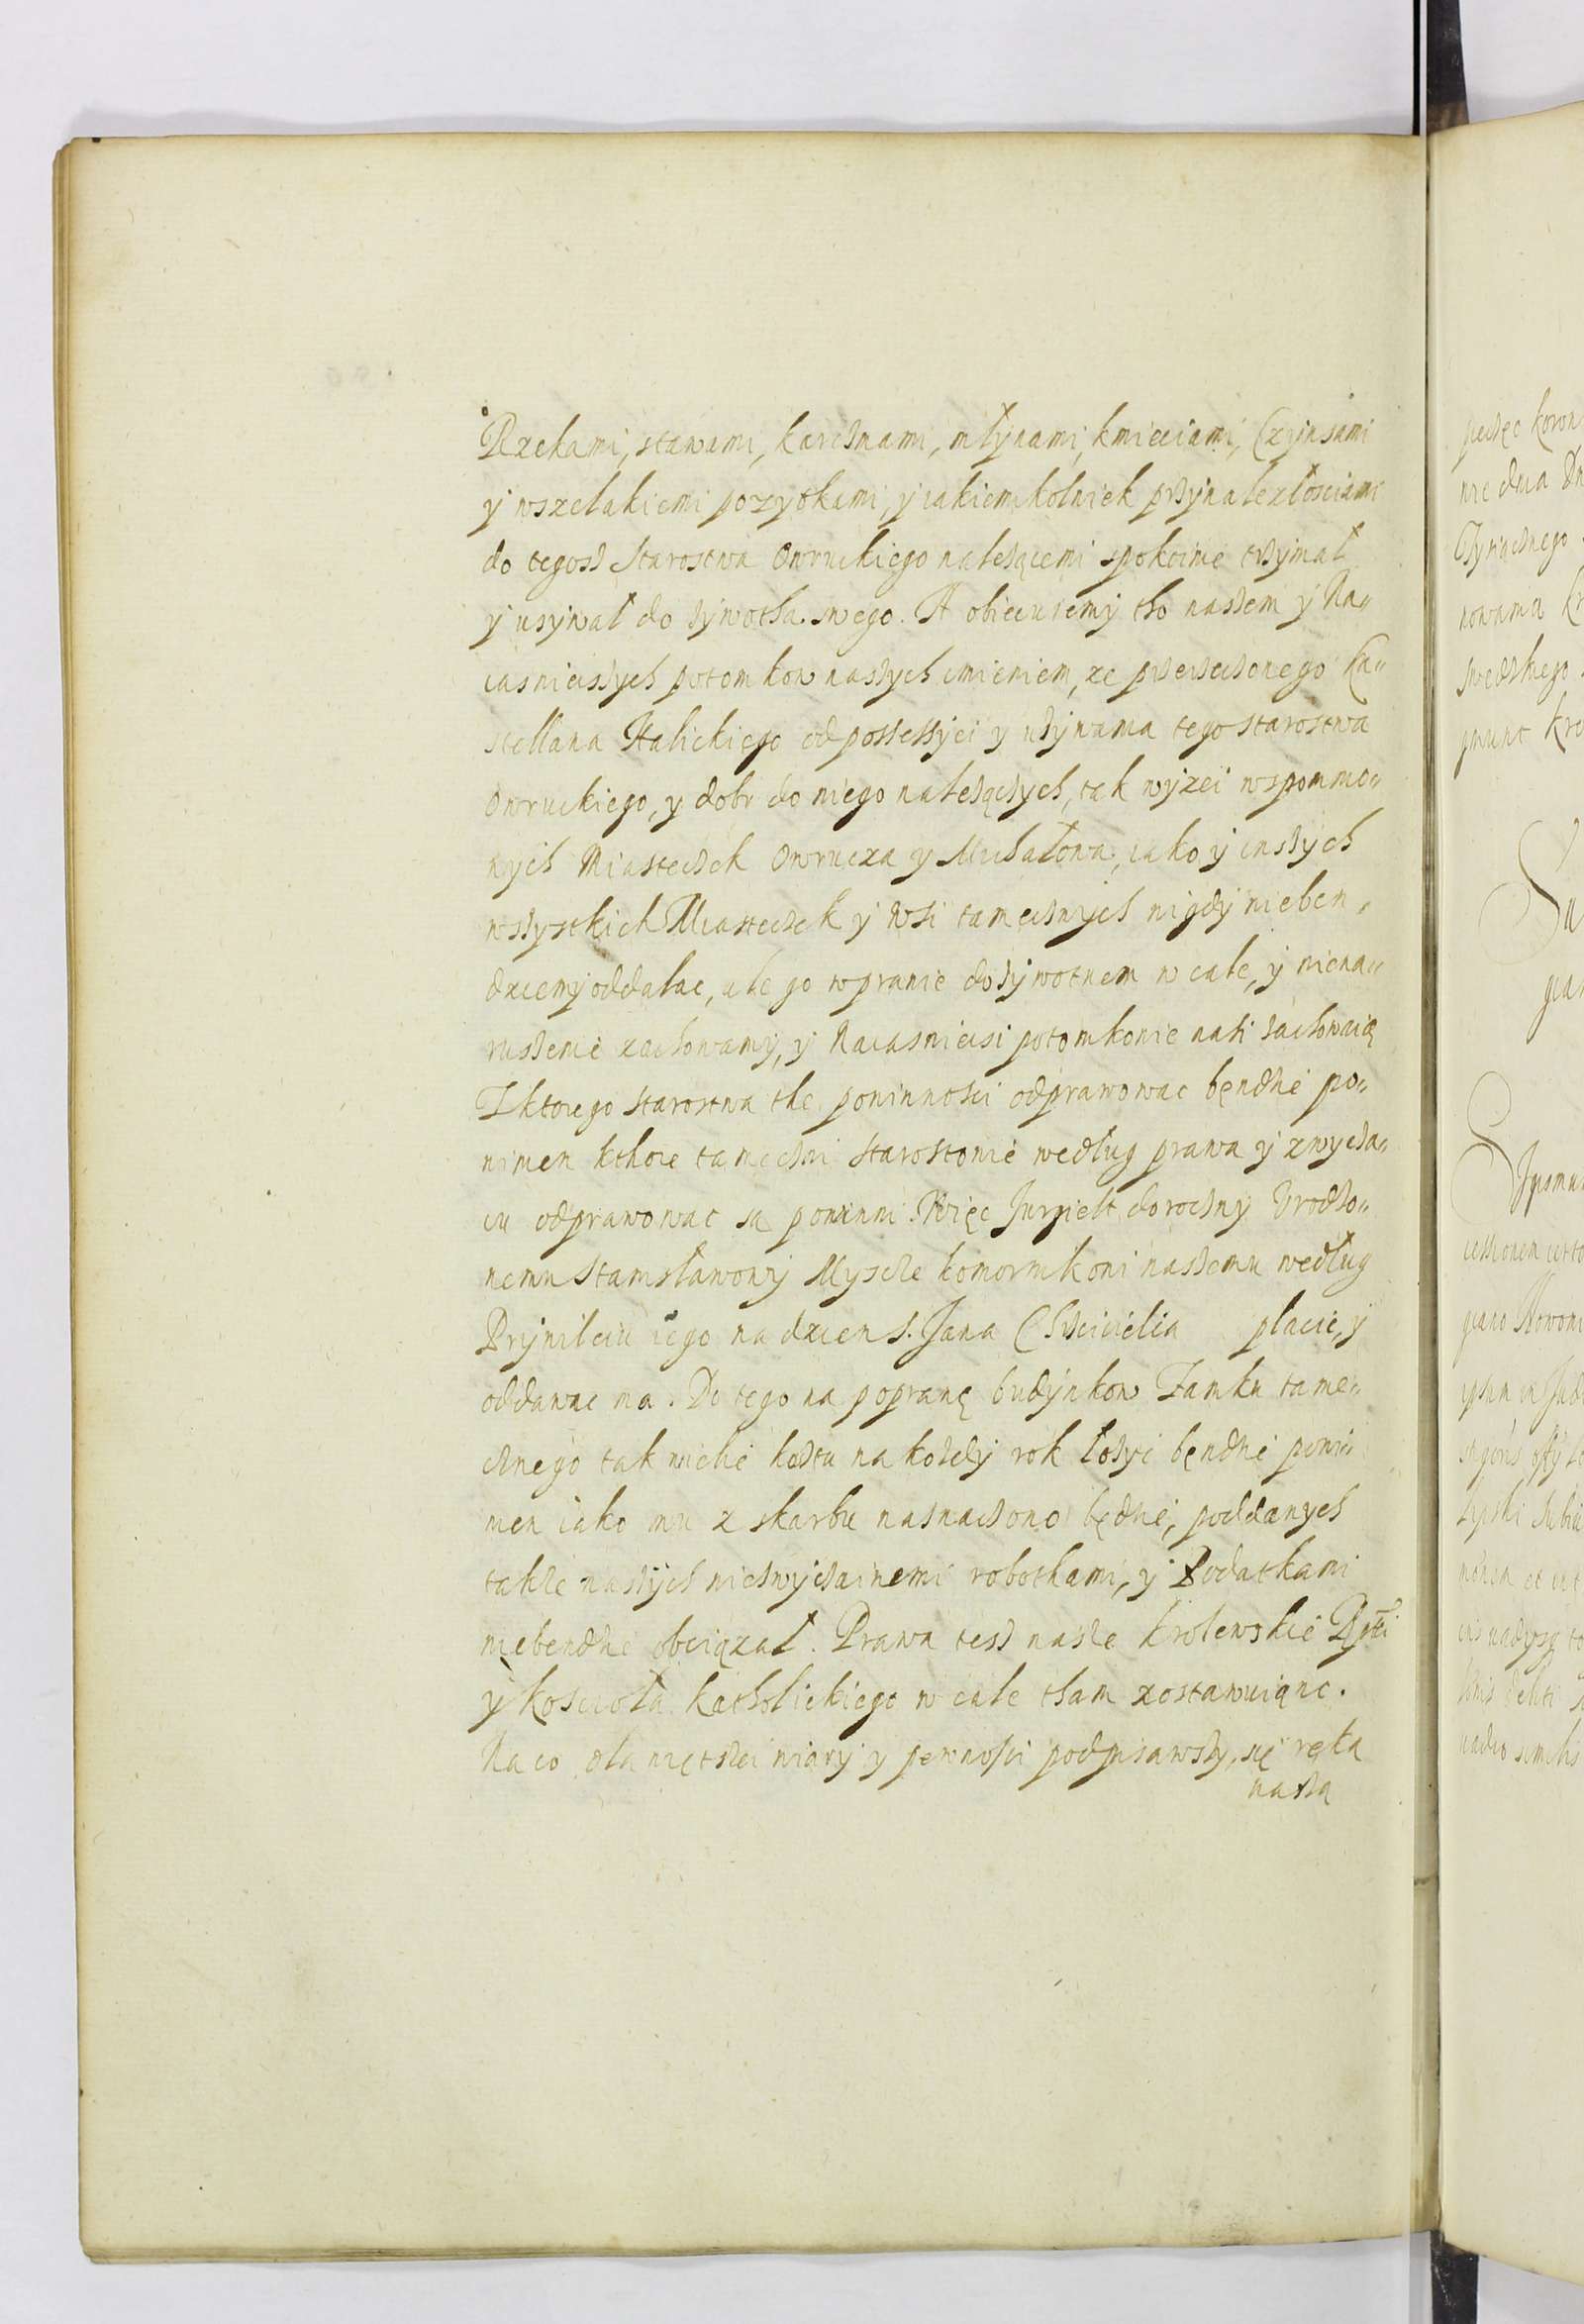 Rzekami, stawami, karcżnami, młÿnami, kmieciami, Czÿnsami
ÿ wszelakiemi pozytkami, ÿ iakiemikolwiek prżÿnalezłosciami
do tegosż Starostwa Owruckiego należącemi spokoinie trżÿmał
ÿ użÿwał do żÿwotha swego. A obiecuiemÿ tho naszem ÿ Na„
iasnieiszÿch potomkow naszÿch imieniem, ze przerżeczonego Ka„
stellana Halickiego od possessÿei y użÿwania tego starostwa
Owruckiego, y dobr do niego należączÿch, tak wÿżei wspomnio„
nÿch Miasteczek Owrucza y Michałowa, iako ÿ inszÿch
wszÿstkich Miasteczek ÿ wsi tamecżnÿch nigdÿ nieben„
dziemÿ oddalac, ale go w prawie dożÿwotnem w cale, ÿ niena„
ruszenie zachowamÿ, ÿ Naiasnieisi potomkowie nasi zachowaią
Z ktorego starostwa the powinnosci odprawowac bęndzie po„
winien kthore tamecżni Starostowie według prawa ÿ zwycża„
iu odprawowac są powinni. Więc Jurgielt dorocżnÿ Vrodzo„
nemu Stanisławowÿ Myszle komornikowi naszemu według
Przÿwileiu iego na dzien S. Jana Chrzciciela placic, ÿ
oddawac ma. Do tego na poprawę budÿnkow Zamku tame„
cżnego tak wiele kosztu na każdÿ rok łożÿć bęndzie powi„
nien iako mu z skarbu naznaczono będzie, poddanych
także naszÿch niezwÿcżainemi robothami, ÿ Podatkami
niebendzie obciązał. Prawa tesż nasze krolewskie Rptei
ÿ Kosciola Katholickiego w cale tham zostawuiąnc.
Na co dla większei wiarÿ y pewnosci podpisawszÿ się ręka
naszą